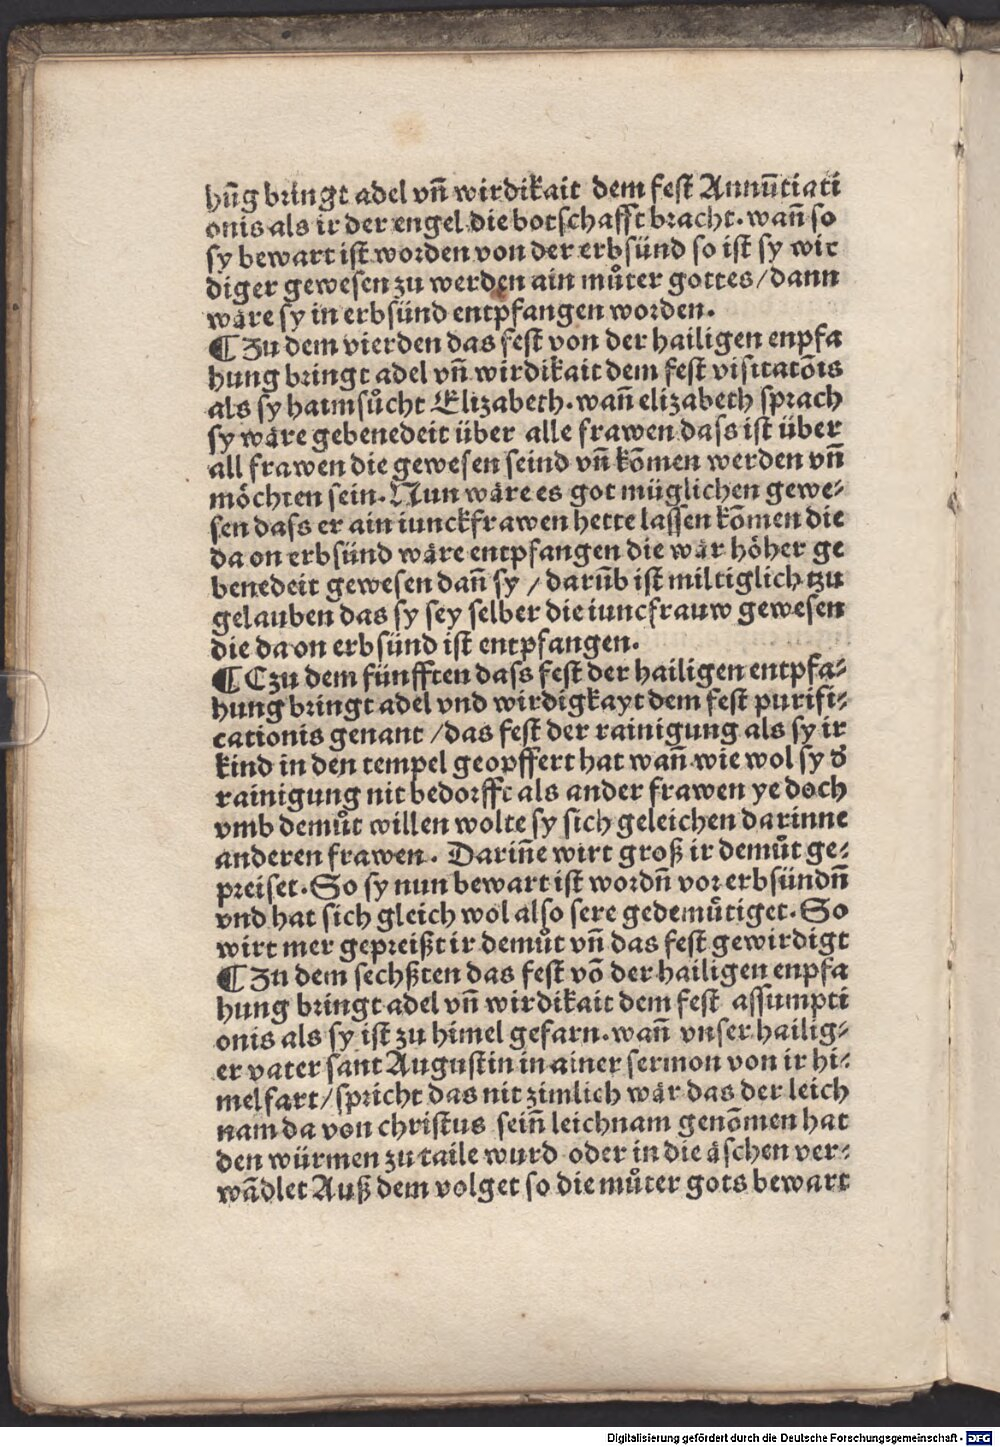 hūg bringt adel vn̄ wirdikait dem fest Annūtiati
onis als ir der engel die botschafft bracht. wan̄ so
sy bewart ist worden von der erbsünd so ist sy wir
diger gewesen zu werden ain můter gottes/dann
wäre sy in erbsünd entpfangen worden.
¶ Zu dem vierden das fest von der hailigen enpfa
hung bringt adel vn̄ wirdikait dem fest visitatōis
als sy haimsůcht Elizabeth. wan̄ elizabeth sprach
sy wäre gebenedeit über alle frawen dass ist über
all frawen die gewesen seind vn̄ kōmen werden vn̄
möchten sein. Nun wäre es got müglichen gewe⸗
sen dass er ain iunckfrawen hette lassen kōmen die
da on erbsünd wäre entpfangen die wär höher ge
benedeit gewesen dan̄ sy / darūb ist miltiglich tzu
gelauben das sy sey selber die iuncfrauw gewesen
die da on erbsünd ist entpfangen.
¶ Czu dem fünfften dass fest der hailigen entpfa⸗
hung bringt adel vnd wirdigkayt dem fest purifi⸗
cationis genant /das fest der rainigung als sy ir
kind in den tempel geopffert hat wan̄ wie wol sy d̄
rainigung nit bedorfft als ander frawen ye doch
vmb demůt willen wolte sy sich geleichen darinne
anderen frawen. Darin̄e wirt groß ir demůt ge⸗
preiset. So sy nun bewart ist wordn̄ vor erbsündn̄
vnd hat sich gleich wol also sere gedemůtiget. So
wirt mer gepreißt ir demůt vn̄ das fest gewirdigt
¶ Zu dem sechßten das fest vō der hailigen enpfa
hung bringt adel vn̄ wirdikait dem fest assumpti
onis als sy ist zu himel gefarn. wan̄ vnser hailig⸗
er vater sant Augustin in ainer sermon von ir hi⸗
melfart/spricht das nit zimlich wär das der leich
nam da von christus sein̄ leichnam genōmen hat
den würmen zu taile wurd oder in die äschen ver⸗
wādlet Auß dem volget so die můter gots bewart
Digitalisierung gefördert durch die Deutsche Forschungsgemeinschaft - DFG